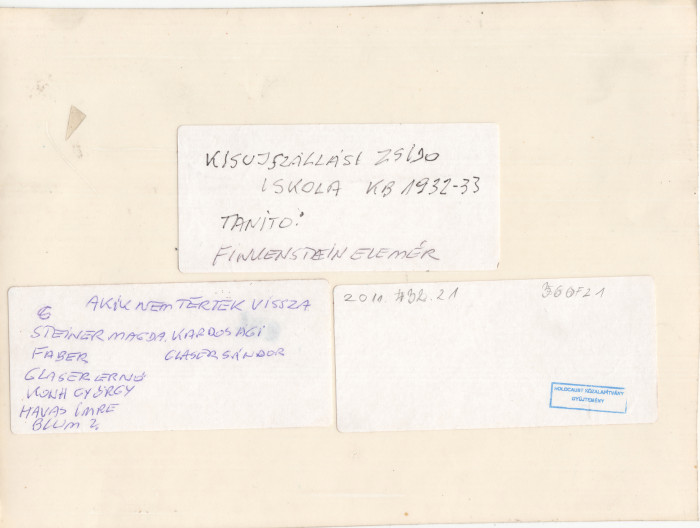 KISUJSZÁLLÁSI ZSIDO
ISKOLA KB 1932-33
TANITO:
FINKENSTEIN ELEMÉR
AKIK NEM TÉRTEK VISSZA
STEINER MAGDA. KARDOS ÁGI
FABER GLASER SÁNDOR
GLASER ERNŐ
KOHN GYÖRGY
HAVAS IMRE
BLUM
2011
HOLOCAUST KÖZALAPÍTVÁNY
GYŰJTEMÉNY